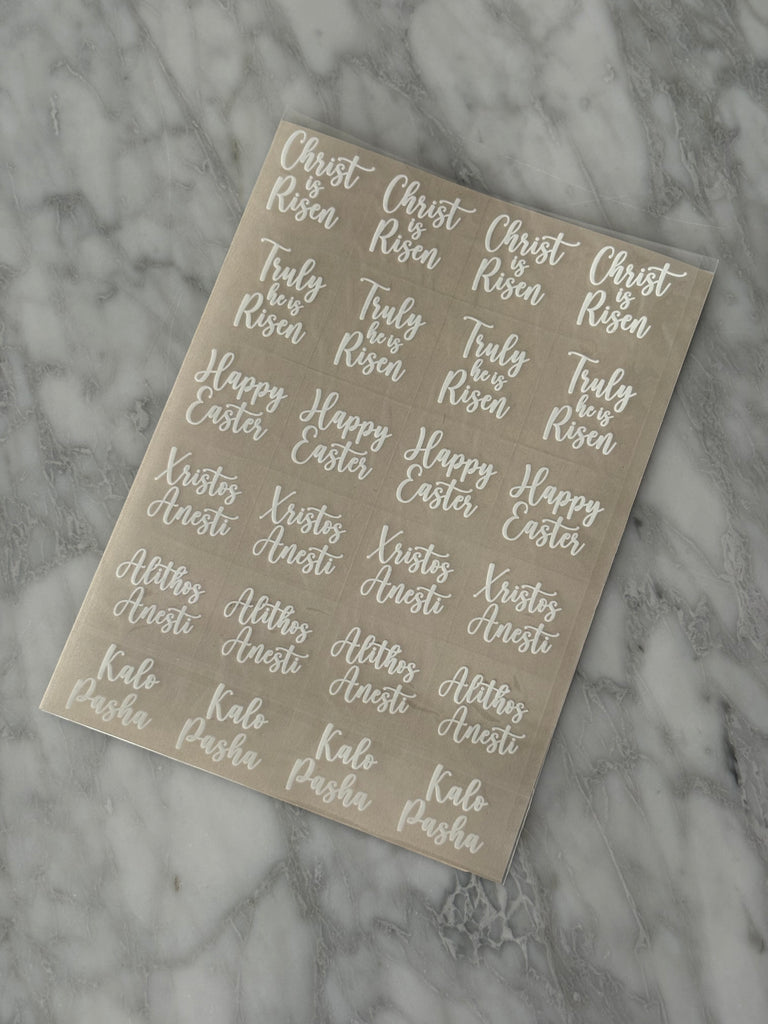 Christ
is
Risen
Christ
is
Risen
Christ
is
Risen
Christ
is
Risen
Truly
he is
Risen
Truly
he is
Risen
Truly
he is
Risen
Truly
he is
Risen
Happy
Easter
Happy
Easter
Happy
Easter
Happy
Easter
Xristos
Anesti
Xristos
Anesti
Xristos
Anesti
Xristos
Anesti
Alithos
Anesti
Alithos
Anesti
Alithos
Anesti
Alithos
Anesti
Kalo
Pasha
Kalo
Pasha
Kalo
Pasha
Kalo
Pasha